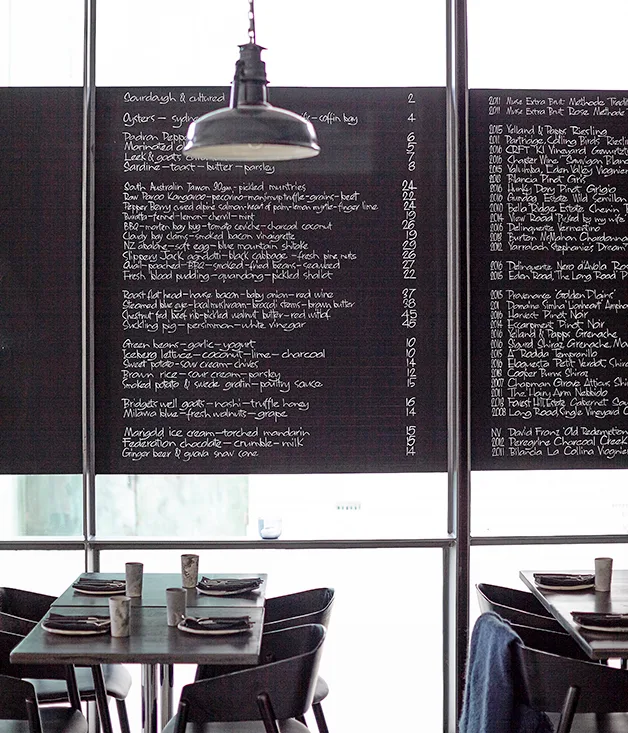 Sourdough & cultured 2
Oysters — coffin bay 4
Padron 6
Marinated 5
Leek & goats 7
Sardine — toast — butter — parsley 8
South Australian Jamon 30gm — pickled muntries 24
Raw Paroo Kangaroo — pecorino — manjimup truffle — grains — beet 22
Pepper Berry cured alpine salmon — heart of palm — lemon myrtle — finger lime 24
Burrata — fennel — lemon — chervil — mint 19
BBQ — morten bay bug — tomato ceviche — charcoal coconut 26
Cloudy bay clams — smoked bacon vinaigrette 19
NZ abalone — soft egg — blue mountain shitake 29
Slippery Jack agnolotti — black cabbage — fresh pine nuts 26
Quail poached — BBQ — smoked — fried beans — seaweed 27
Fresh blood pudding — quandong — pickled shallot 22
Roast flat head — house bacon — baby onion — red wine 37
Steamed blue eye — local mushroom — broccoli stems — brown butter 38
Chestnut fed beef rib — pickled walnut butter — red witlof 45
Suckling pig — persimmon — white vinegar 45
Green beans — garlic — yogurt 10
Iceberg lettuce — coconut — lime — charcoal 10
Sweet potato — sour cream — chives 14
Brown rice — sour cream — parsley 12
Smoked potato & swede gratin — poultry sauce 15
Bridgets well goats — nashi — truffle honey 16
Milawa blue — fresh walnuts — grape 14
Marigold ice cream — torched mandarin 15
Federation chocolate — crumble — milk 15
Ginger beer & guava snow cone 14
2011 Muse Extra Brut Methode
2011 Muse Extra Brut Rose Methode
2015 Yelland & Papps Riesling
2011 Partridge, Calling Birds Riesling
2016 CRFT K1 Vineyard
2016 Kharter Wine Sauvignon Blanc
2015 Yalumba, Eden Valley Viognier
2013 Blancia Pinot Gris
2016 Hunky Dory Pinot Grigio
2016 Gundog Estate Wild Semillon
2010 Bella Ridge Estate Chenin
2014 View Road Picked by my wife
2016 Delinquente Vermentino
2016 Burton McMahon Chardonnay
2012 Yarraloch Stephanie's Dream
2016 Delinquente Nero d'Avola
2015 Eden Road, The Long Road
2015 Provenance Golden Plains
2011 Domaine Simha
2016 Hanivet Pinot Noir
2014 Escarpment Pinot Noir
2016 Yelland & Papps Grenache
2016 Sigurd Shiraz Grenache
2015 A. Rodda Tempranillo
2016 Eloquesta Petit Verdot, Shiraz
2013 Cooper Burns Shiraz
2007 Chapman Grove Atticus
2011 The Hairy Arm Nebbiolo
2013 Forest Hill Estate Cabernet
2008 Long Road, Single Vineyard
NV David Franz Old Redemption
2012 Peregrine Charcoal Creek
2011 Bilancia La Collina Viognier